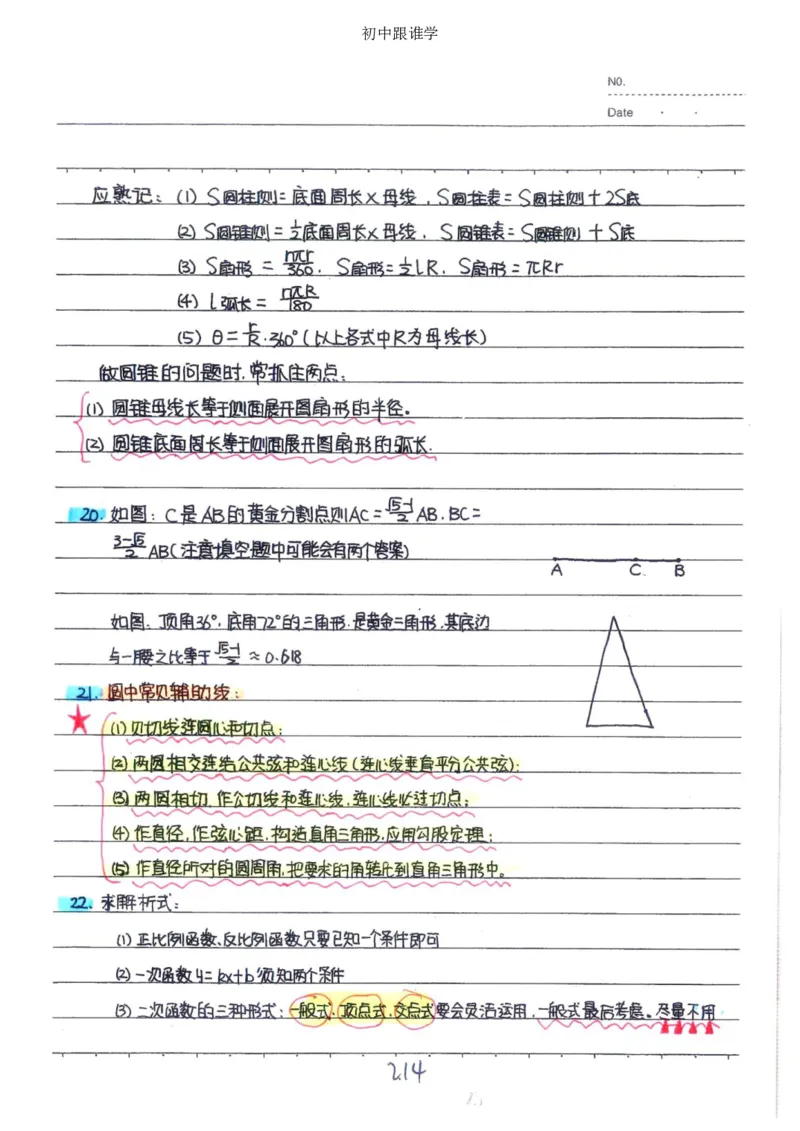 初中跟谁学
NO.
Date · ·
应熟记：(1) S圆柱侧=底面周长×母线，S圆柱表=S圆柱侧+2S底
(2) S圆锥侧=1/2底面周长×母线，S圆锥表=S圆锥侧+S底
(3) S扇形=nπr/360，S扇形=1/2LR，S扇形=πRr
(4) l弧长=nπR/180
(5) θ=r/R·360°(以上各式中R为母线长)
做圆锥的问题时，常抓住两点：
(1) 圆锥母线长等于侧面展开图扇形的半径。
(2) 圆锥底面周长等于侧面展开图扇形的弧长.
20. 如图：C是AB的黄金分割点则AC=(√5-1)/2AB．BC=
(3-√5)/2AB(注意填空题中可能会有两个答案)
A C. B
如图．顶角36°，底角72°的三角形．是黄金三角形，其底边
与一腰之比等于(√5-1)/2≈0.618
21. 圆中常见辅助线：
(1) 见切线连圆心和切点；
(2) 两圆相交连结公共弦和连心线(连心线垂直平分公共弦)；
(3) 两圆相切，作公切线和连心线，连心线必过切点；
(4) 作直径，作弦心距，构造直角三角形，应用勾股定理；
(5) 作直径所对的圆周角，把要求的角转化到直角三角形中。
22. 求解析式：
(1) 正比例函数、反比例函数只要已知一个条件即可
(2) 一次函数y=kx+b须知两个条件
(3) 二次函数的三种形式：一般式．顶点式．交点式要会灵活运用，一般式最后考虑。尽量不用
214